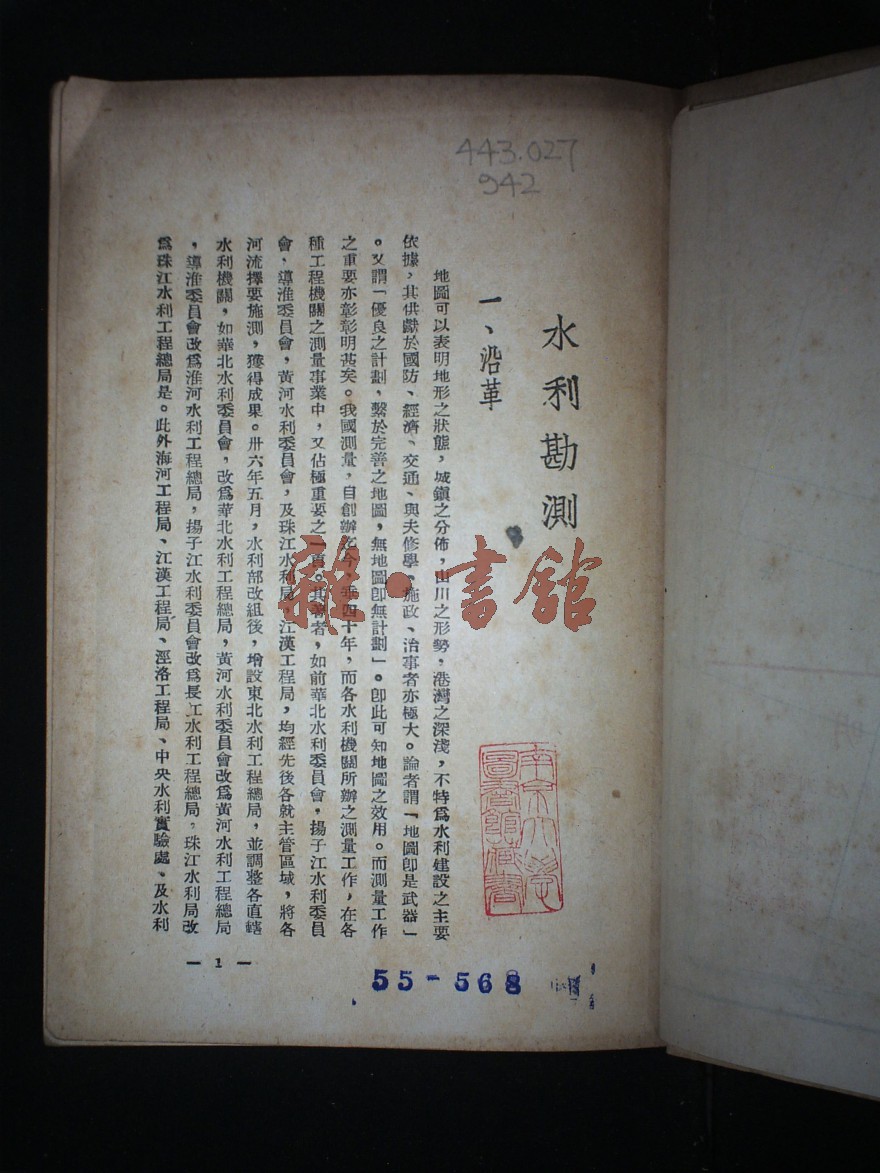 443.027
942
水利勘測
一、沿革
地圖可以表明地形之狀態，城鎮之分佈，山川之形勢，港灣之深淺，不特爲水利建設之主要
依據，其供獻於國防、經濟、交通、與夫修學、施政、治事者亦極大。論者謂「地圖卽是武器」
。又謂「優良之計劃，繫於完善之地圖，無地圖卽無計劃」。卽此可知地圖之效用。而測量工作
之重要亦彰彰明甚矣。我國測量，自創辦迄今，垂四十年，而各水利機關所辦之測量工作，在各
種工程機關之測量事業中，又佔極重要之一頁。其著者，如前華北水利委員會，揚子江水利委員
會，導淮委員會，黃河水利委員會，及珠江水利局，江漢工程局，均經先後各就主管區域，將各
河流擇要施測，獲得成果。卅六年五月，水利部改組後，增設東北水利工程總局，並調整各直轄
水利機關，如華北水利委員會，改爲華北水利工程總局，黃河水利委員會改爲黃河水利工程總局
，導淮委員會改爲淮河水利工程總局，揚子江水利委員會改爲長江水利工程總局，珠江水利局改
爲珠江水利工程總局是。此外海河工程局、江漢工程局、涇洛工程局、中央水利實驗處、及水利
— 1 —
南京大學
圖書館藏書
55-568
雜·書館